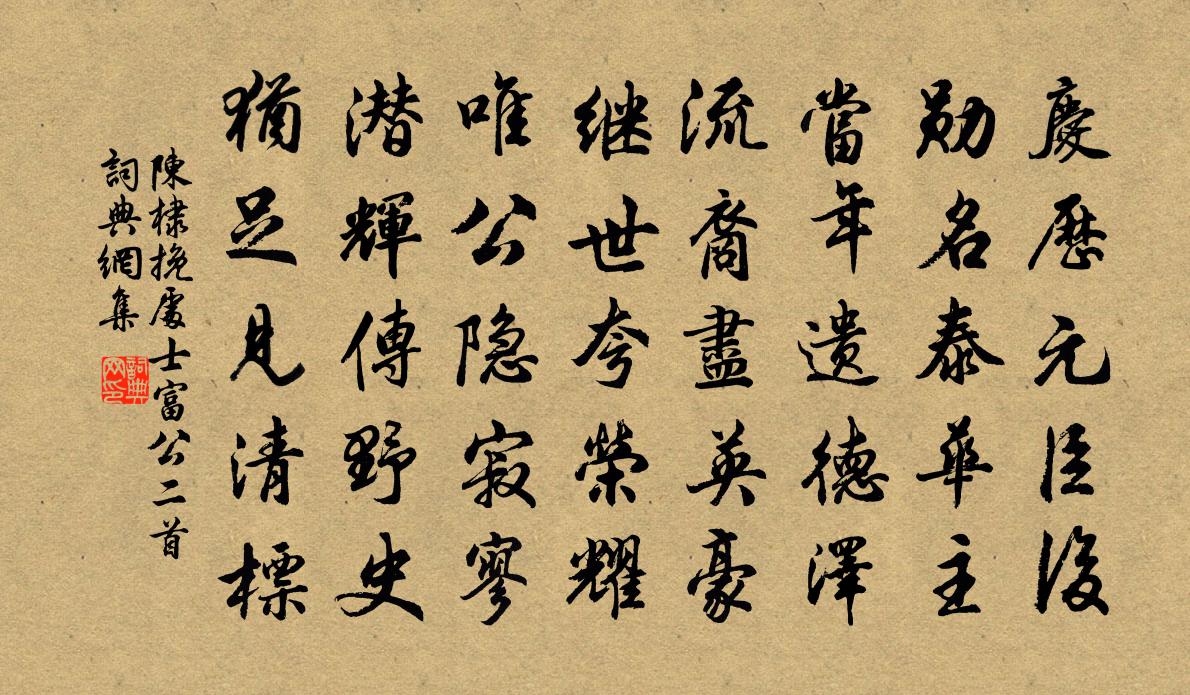 慶歷元臣後
勛名泰華主
當年遺德澤
流裔盡英豪
继世夸榮耀
唯公隐寂寥
潜輝傳野史
猶足見清標
陳棣挽處士富公二首
詞典網集
詞典网印